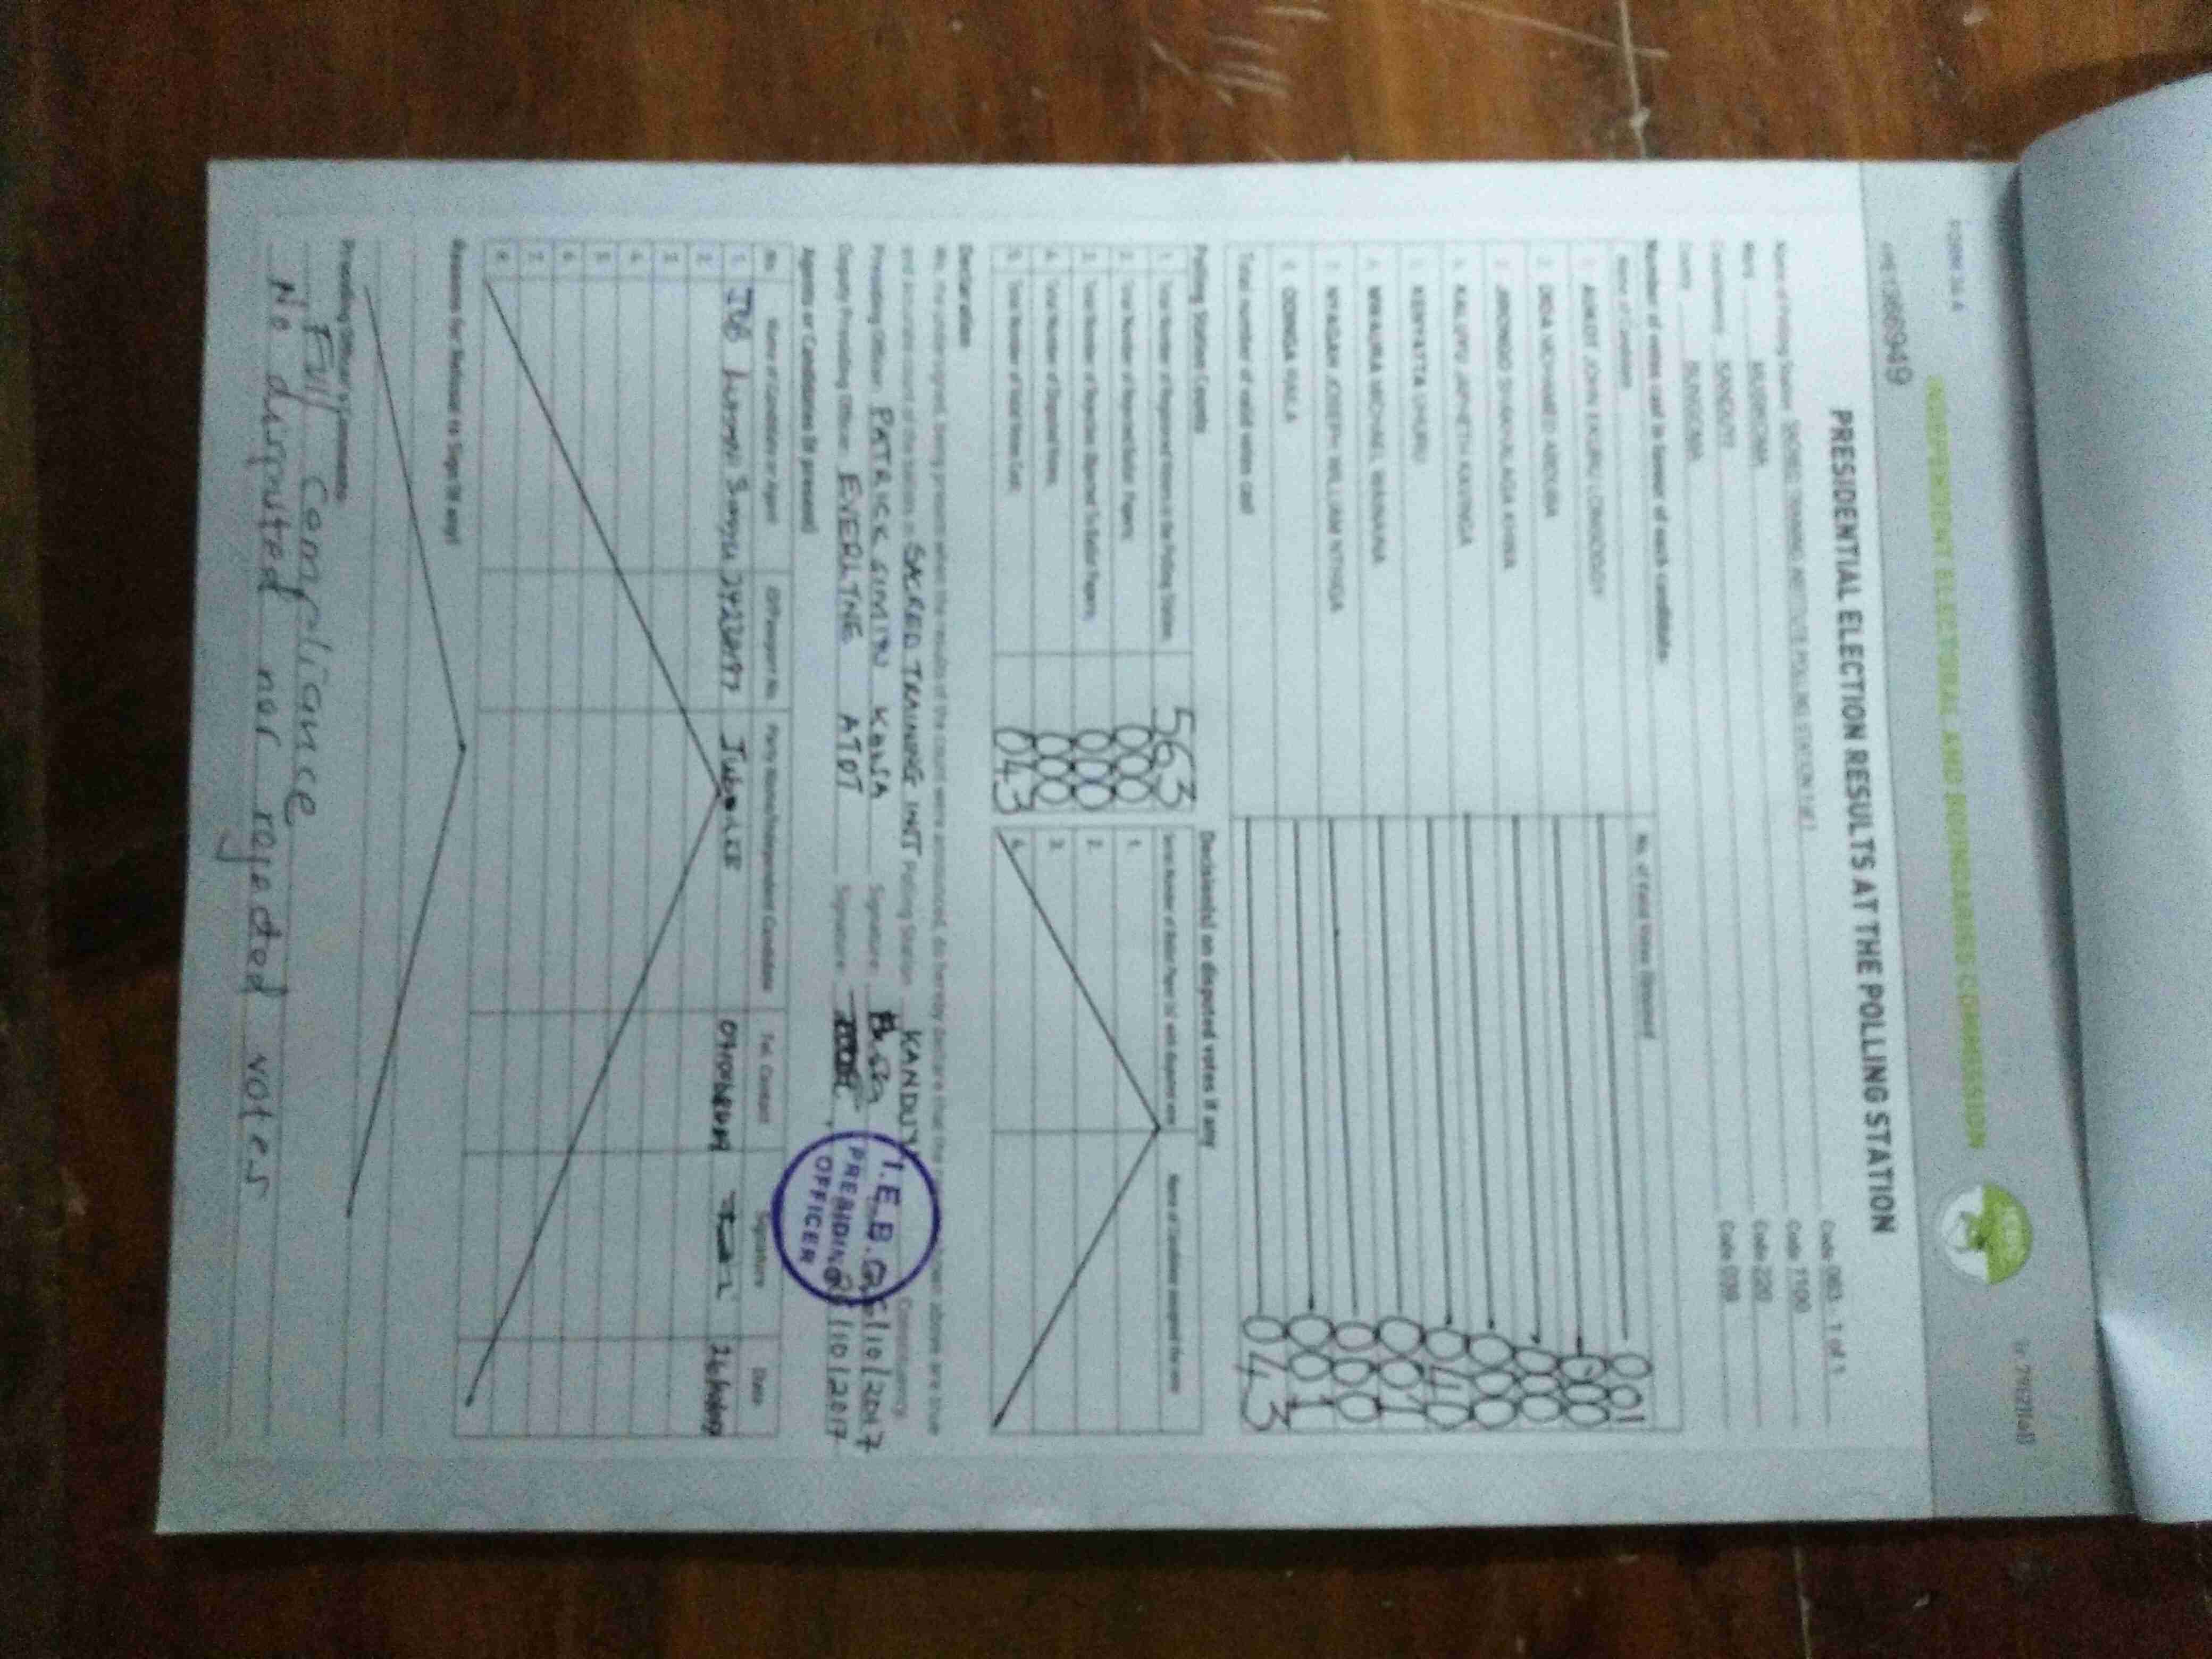 FORM 34 A
INDEPENDENT ELECTORAL AND BOUNDARIES COMMISSION
PRESIDENTIAL ELECTION RESULTS AT THE POLLING STATION
Name of Polling Station SACRED TRAINING INSTITUTE POLLING STATION 1 of 1 Code 063 - 1 of 1
Ward Code 1100
Constituency KANDUYI Code 220
County BUNGOMA Code 039
Number of votes cast in favour of each candidate:
Name of Candidate No. of Valid Votes Obtained
1. AUKOT JOHN EKURU LONGOGGY 001
2. DIDA MOHAMED ABDUBA 000
3. JIRONGO SHAKHALAGA KHWA 000
4. KALUYU JAPHETH KAVINGA 000
5. KENYATTA UHURU 040
6. MWAURA MICHAEL WAINAINA 001
7. NYAGAH JOSEPH WILLIAM NTHIGA 000
8. ODINGA RAILA 001
Total number of valid votes cast 043
Polling Station Counts
1. Total Number of Registered Voters in the Polling Station 563
2. Total Number of Rejected Ballot Papers 000
3. Total Number of Rejection Objected To Ballot Papers 000
4. Total Number of Disputed Votes 000
5. Total Number of Valid Votes Cast 043
Decision(s) on disputed votes if any
1.
2.
3.
4.
Declaration
We, the undersigned, being present when the results of the count were announced, do hereby declare that the results shown above are true
and accurate count of the ballots in SACRED TRAINING INST Polling Station KANDUYI Constituency
Presiding Officer: PATRICK SIMIYU Signature
Deputy Presiding Officer: EVERLINE ATOT Signature /10/2017
I.E.B.C.
PRESIDING
OFFICER
Agents or Candidates (if present)
No. Name of Candidate or Agent ID/Passport No. Party Name/Independent Candidate Tel. Contact Signature Date
1. Jubilee
2
3
4
5
6
7
8
Reasons for Refusal to Sign (if any)
Presiding Officer's Comments:
Full compliance
No disputed nor rejected votes